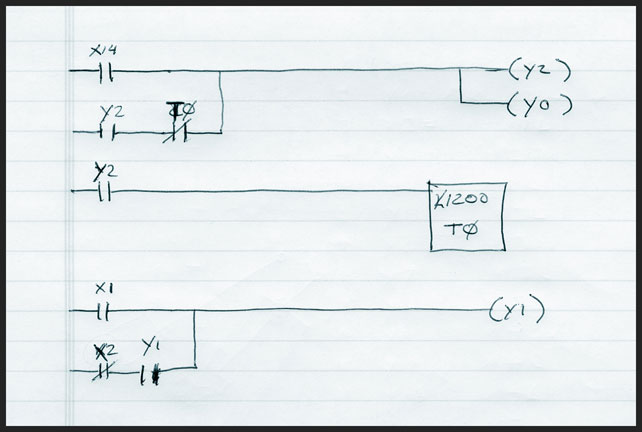 X14
(Y2)
Y2 TØ
(Y0)
Y2
K1200
TØ
X1
(Y1)
X2 Y1